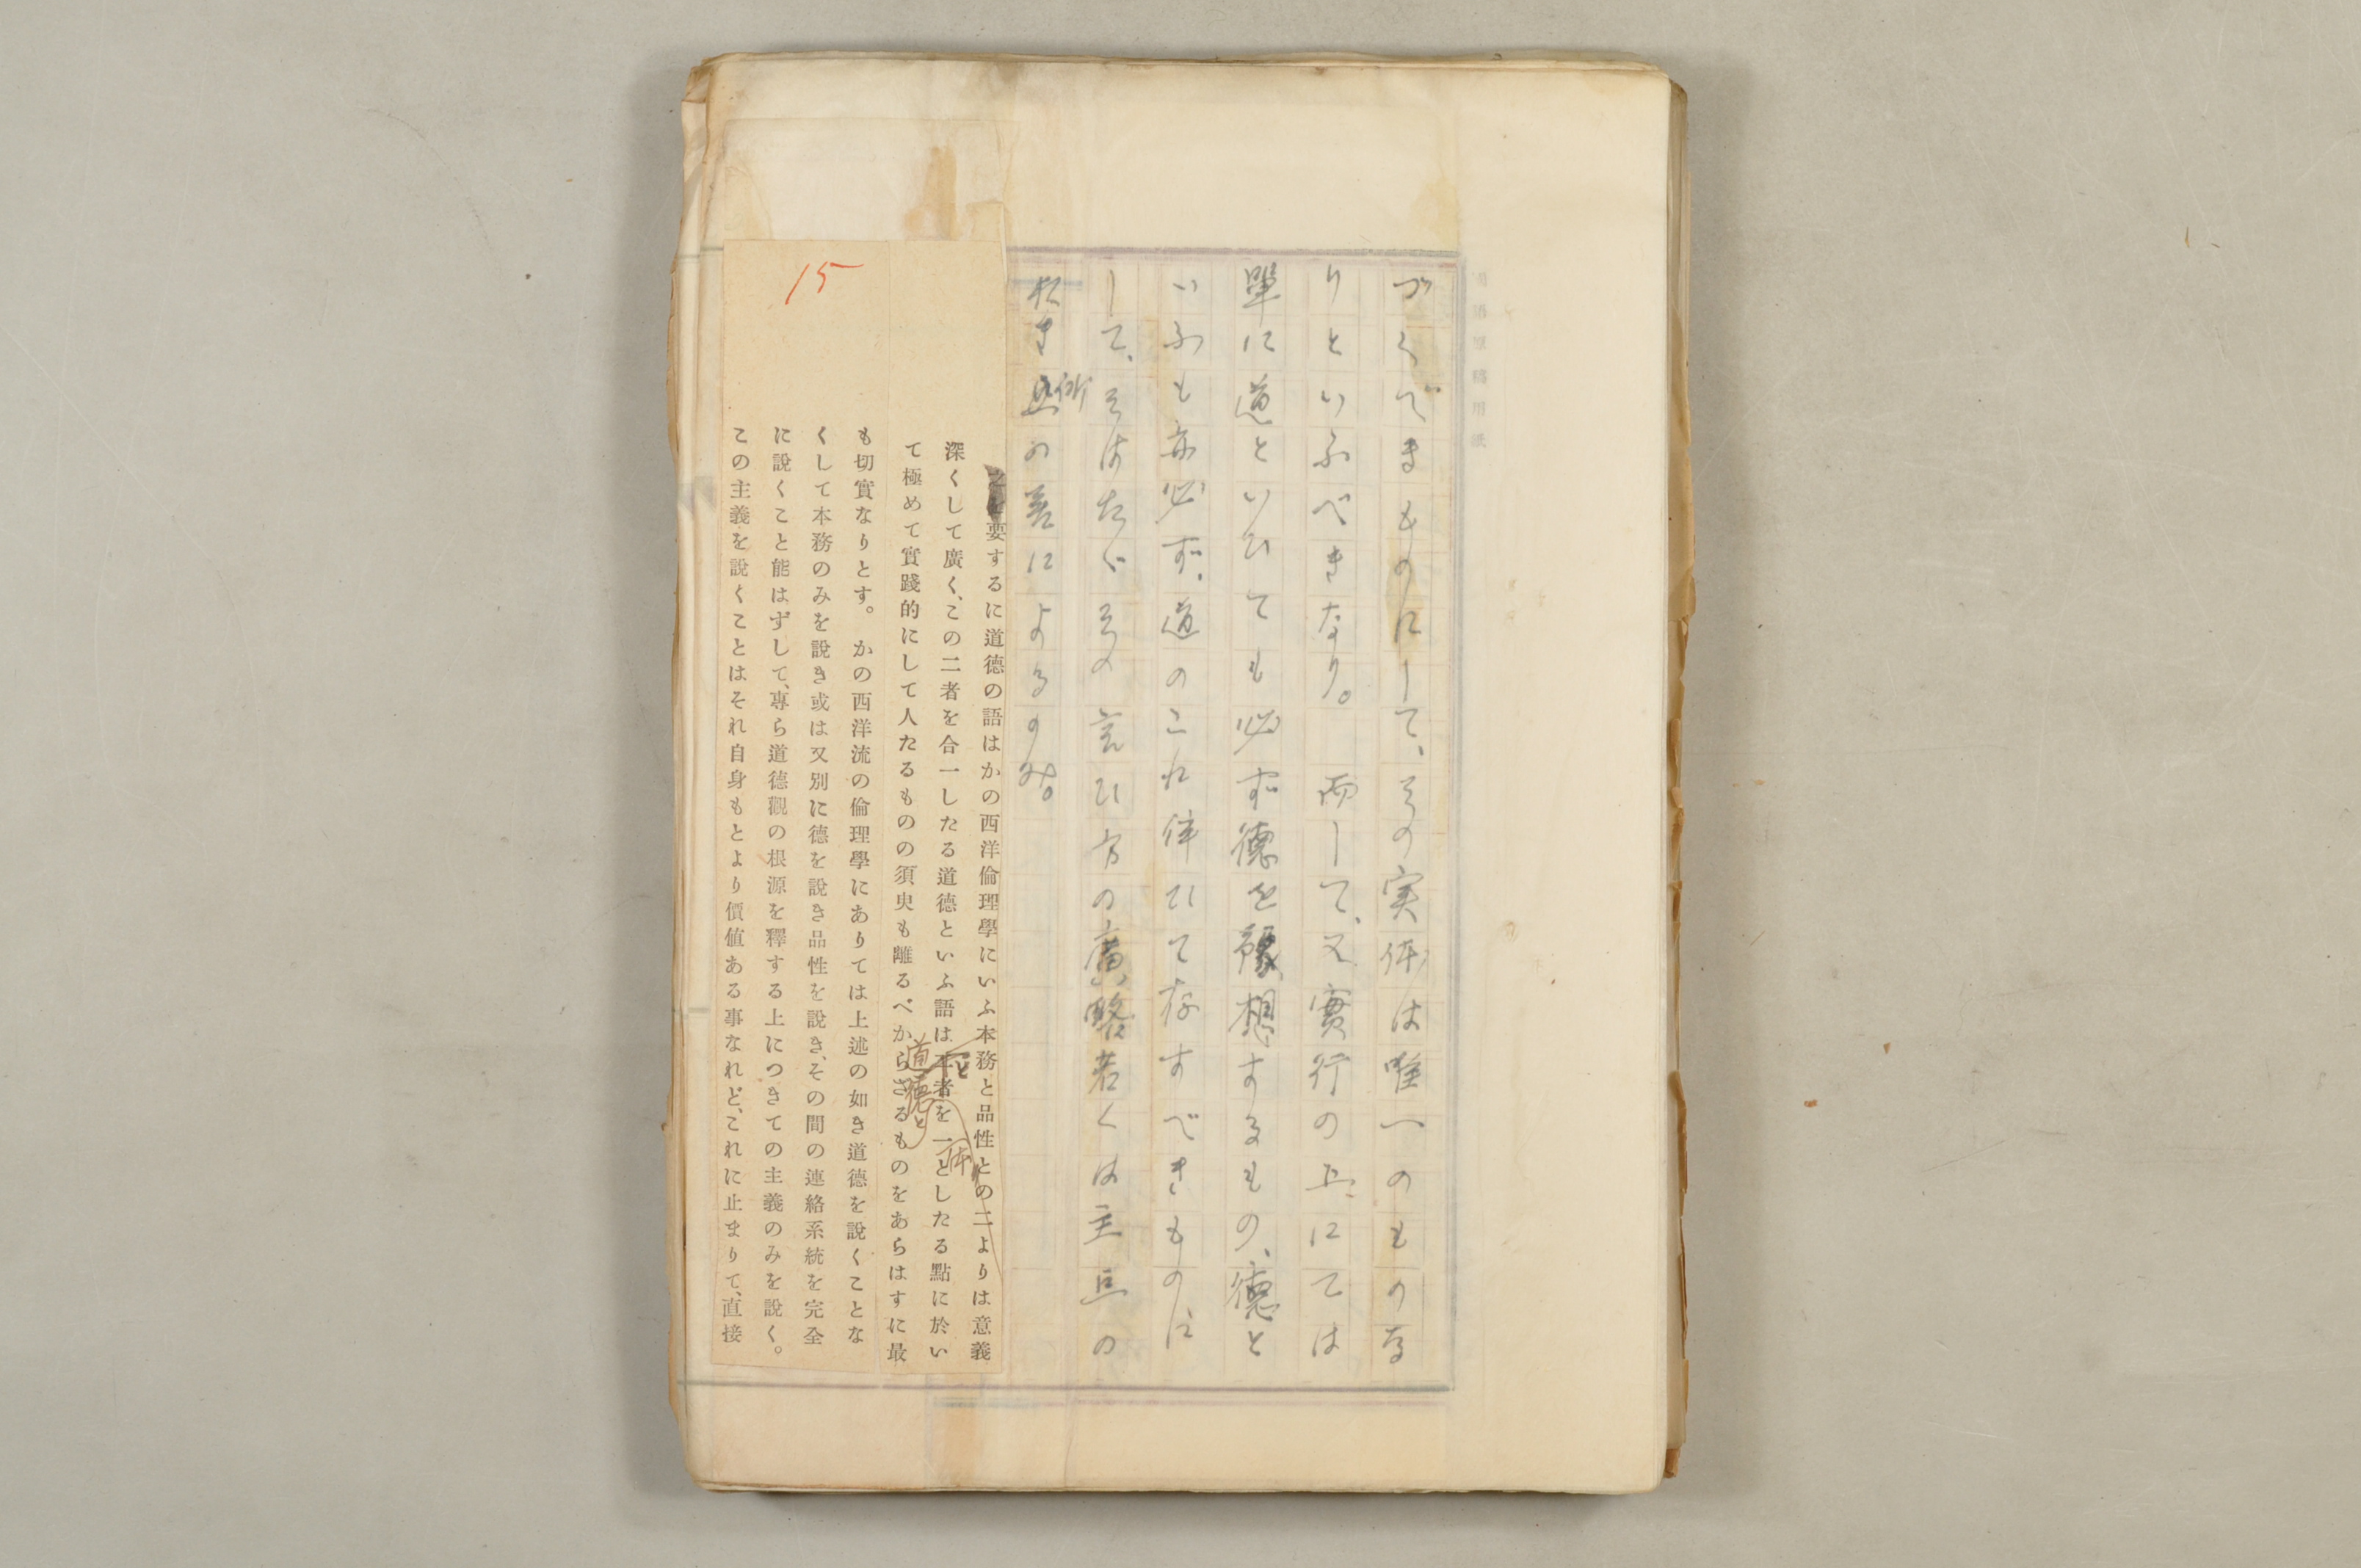 づくべきものにして、その実体は唯一のものな
りといふべきなり。　而して、又實行の上にては
單に道といひても必ず德を豫想するもの、德と
いふも亦必ず、道のこれ伴ひて存すべきものに
して、そはたゞその言ひ方の廣略若くは主点の
於き所の差によるのみ。
15
之を要するに道德の語はかの西洋倫理學にいふ本務と品性との二よりは意義
深くして廣く、この二者を合一したる道德といふ語は二者を一としたる點に於い
道と
德と
体
て極めて實踐的にして人たるものの須臾も離るべからざるものをあらはすに最
も切實なりとす。かの西洋流の倫理學にありては上述の如き道德を說くことな
くして本務のみを說き或は又別に德を說き品性を說き、その間の連絡系統を完全
に說くこと能はずして、專ら道德觀の根源を釋する上につきての主義のみを說く。
この主義を說くことはそれ自身もとより價値ある事なれど、これに止まりて、直接